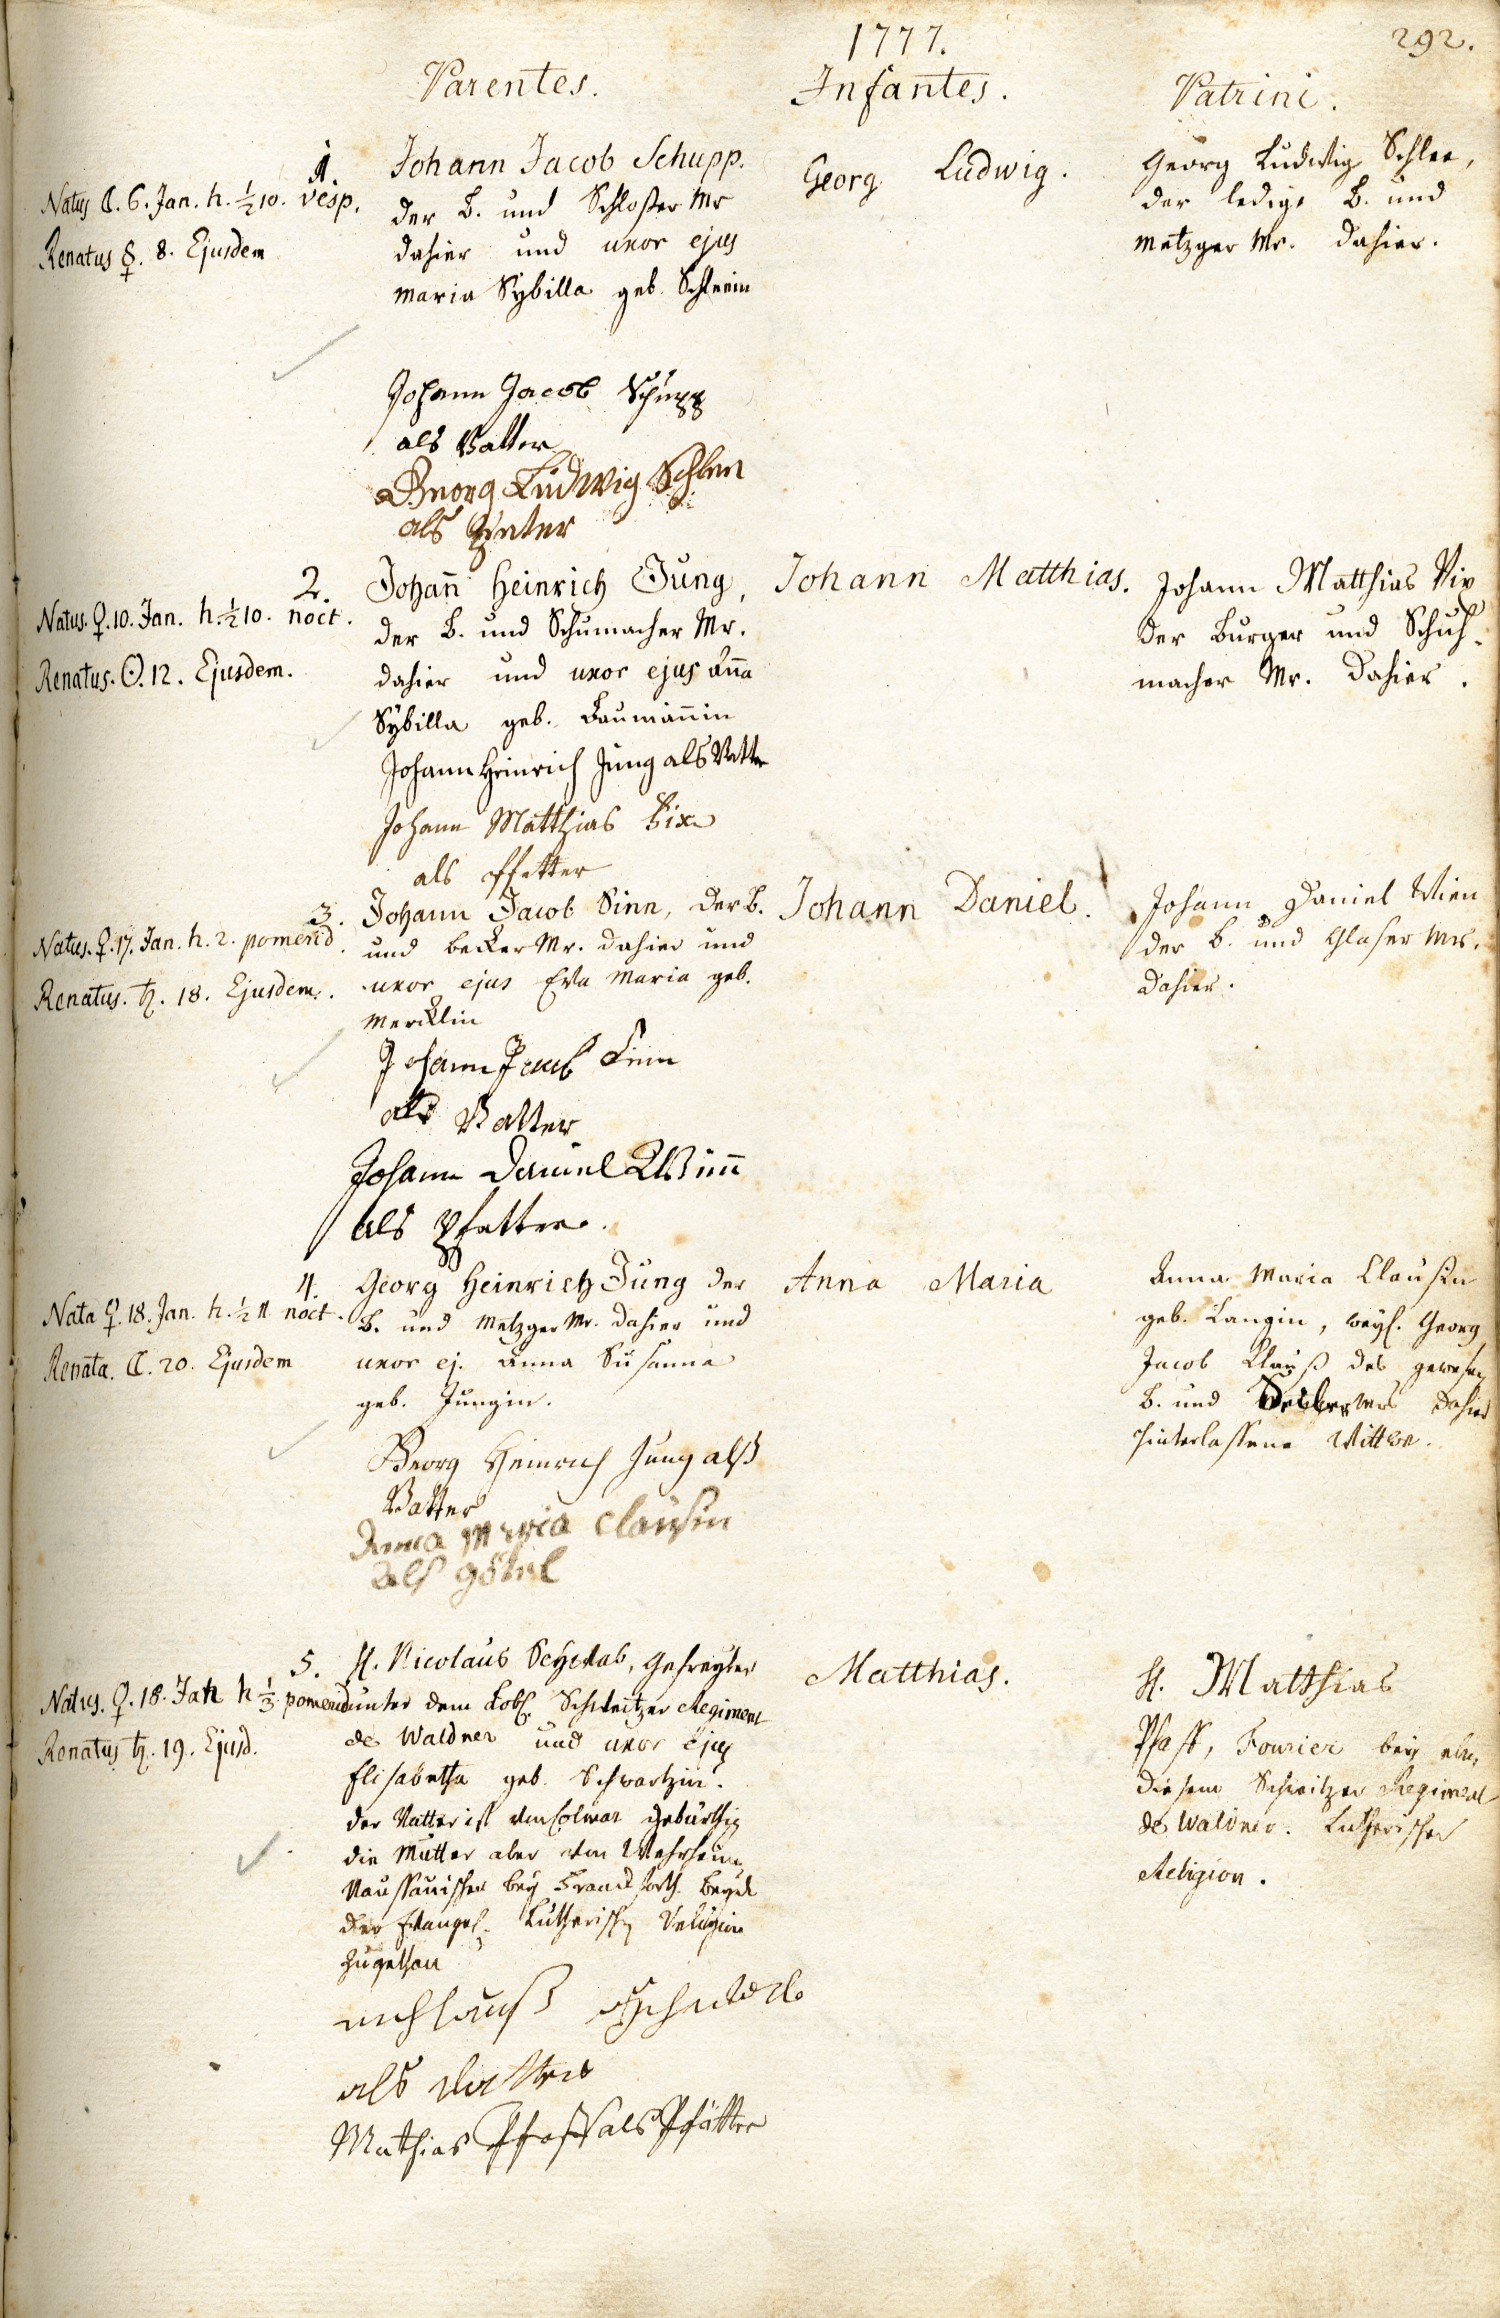 1777.
292.
Parentes.
Infantes.
Patrini.
1.
Natus ☾. 6. Jan. h. ½10. vesp.
Renatus ☿. 8. Ejusdem
Johann Jacob Schupp.
der B. und Schloßer Mr
dahier und uxor ejus
Maria Sybilla geb. Schleein
Georg Ludwig.
Georg Ludwig Schlee,
der ledige B. und
Metzger Mr. dahier.
Johann Jacob Schupp
als Vatter
Georg Ludwig Schlee
als
2.
Natus. ♀. 10. Jan. h. ½10. noct.
Renatus. ☉. 12. Ejusdem.
Johann̄ Heinrich Jung,
der B. und Schumacher Mr.
dahier und uxor ejus Añna
Sybilla geb. Baumännin
Johann Matthias.
Johann Matthias Vix
der Burger und Schuh-
macher Mr. dahier.
Johann Heinrich Jung als Vatter
Johann Matthias Fix
als Pfetter
3.
Natus. ♀. 17. Jan. h. 2. pomerid.
Renatus. ♄. 18. Ejusdem.
Johann Jacob Sinn, der B.
und becker Mr. dahier und
uxor ejus Eva Maria geb.
Mercklin
Johann Daniel.
Johann Daniel Wien
der B. und Glaser Mr.
dahier.
Johann Jacob Sinn
als Vatter
Johann Daniel
als Pfatter.
4.
Nata ♀. 18. Jan. h. ½ 11 noct.
Renata. ☾. 20. Ejusdem
Georg Heinrich Jung der
B. und Metzger Mr. dahier und
uxor ej. Anna Susanna
geb. Jungin.
Anna Maria
Anna Maria Claußin
geb. Langin, weyl. Georg
Jacob Clauß des gewesen
B. und dahier
hinterlassene Wittwe.
Georg Heinrich Jung alß
Vatter
Anna Maria Claußin
als göttel
5.
Natus. ♀. 18. Jan h ⅓ pomerid
Renatus ♄. 19. Ejusd.
H. Nicolaus Gefreyter
unter dem Löbl. Schweitzer Regiment
de Waldner und uxor ejus
Elisabetha geb. Schwartzin.
der Vatter ist von Colmar gebürthig
die Mutter aber von Wehrheim
Naussauischen bey Franckforth. beyde
der Evangel. Lutherischen Religion
zugethan
Matthias.
H. Matthias
Pfaff, Fourier bey eben
diesem Schweitzer Regiment
de Waldner. Lutherischer
Religion.
als Vatter
Mathias Pfaff als Pfätter